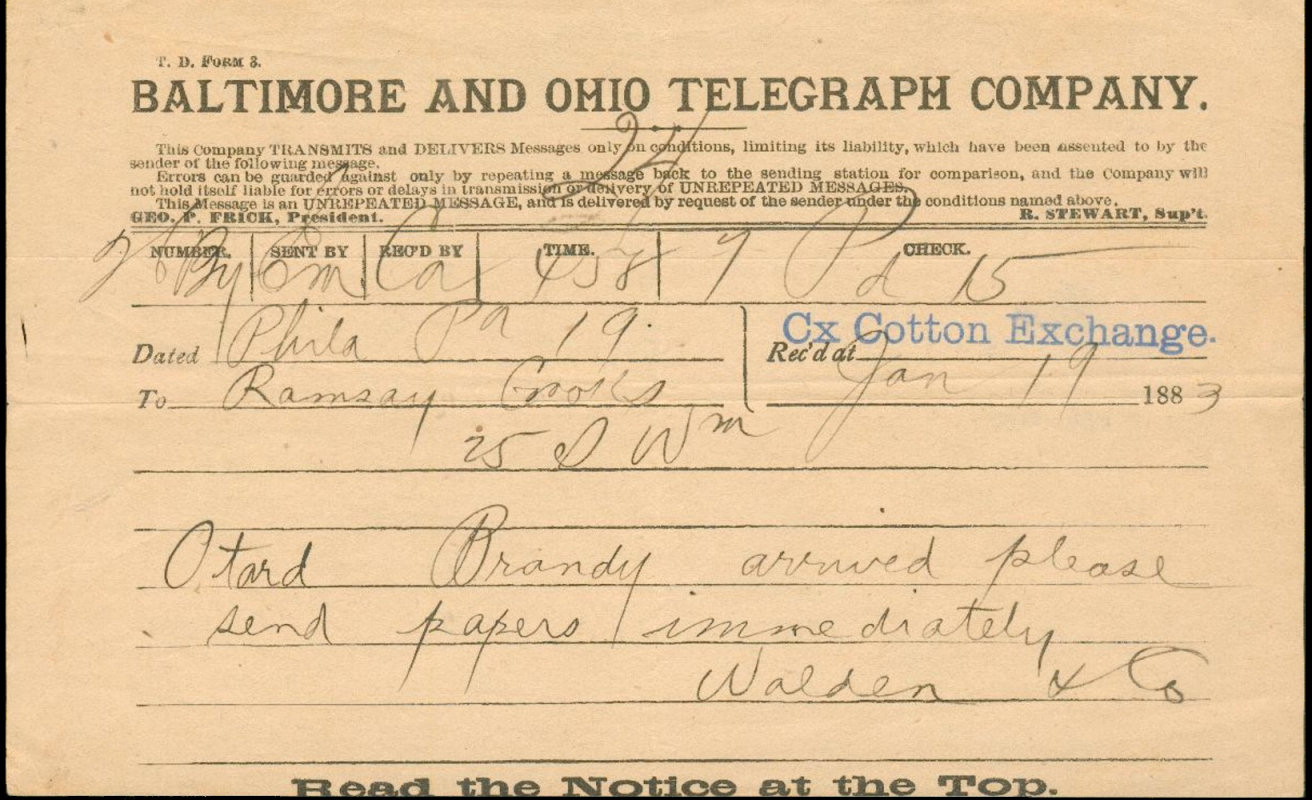 T. D. FORM 3.
BALTIMORE AND OHIO TELEGRAPH COMPANY.
24
This Company TRANSMITS and DELIVERS Messages only on conditions, limiting its liability, which have been assented to by the
sender of the following message.
Errors can be guarded against only by repeating a message back to the sending station for comparison, and the Company will
not hold itself liable for errors or delays in transmission or delivery of UNREPEATED MESSAGES.
This Message is an UNREPEATED MESSAGE, and is delivered by request of the sender under the conditions named above.
GEO. P. FRICK, President. R. STEWART, Sup't.
NUMBER. SENT BY REC'D BY TIME. CHECK.
By Em Ca 458 Pd 15
Cx Cotton Exchange.
Dated Phila Pa 19. Rec'd at
Jan 19 1883
To Ramsay Crooks
25 S Wm
Otard Brandy arrived please
send papers immediately
Walden & Co
Read the Notice at the Top.